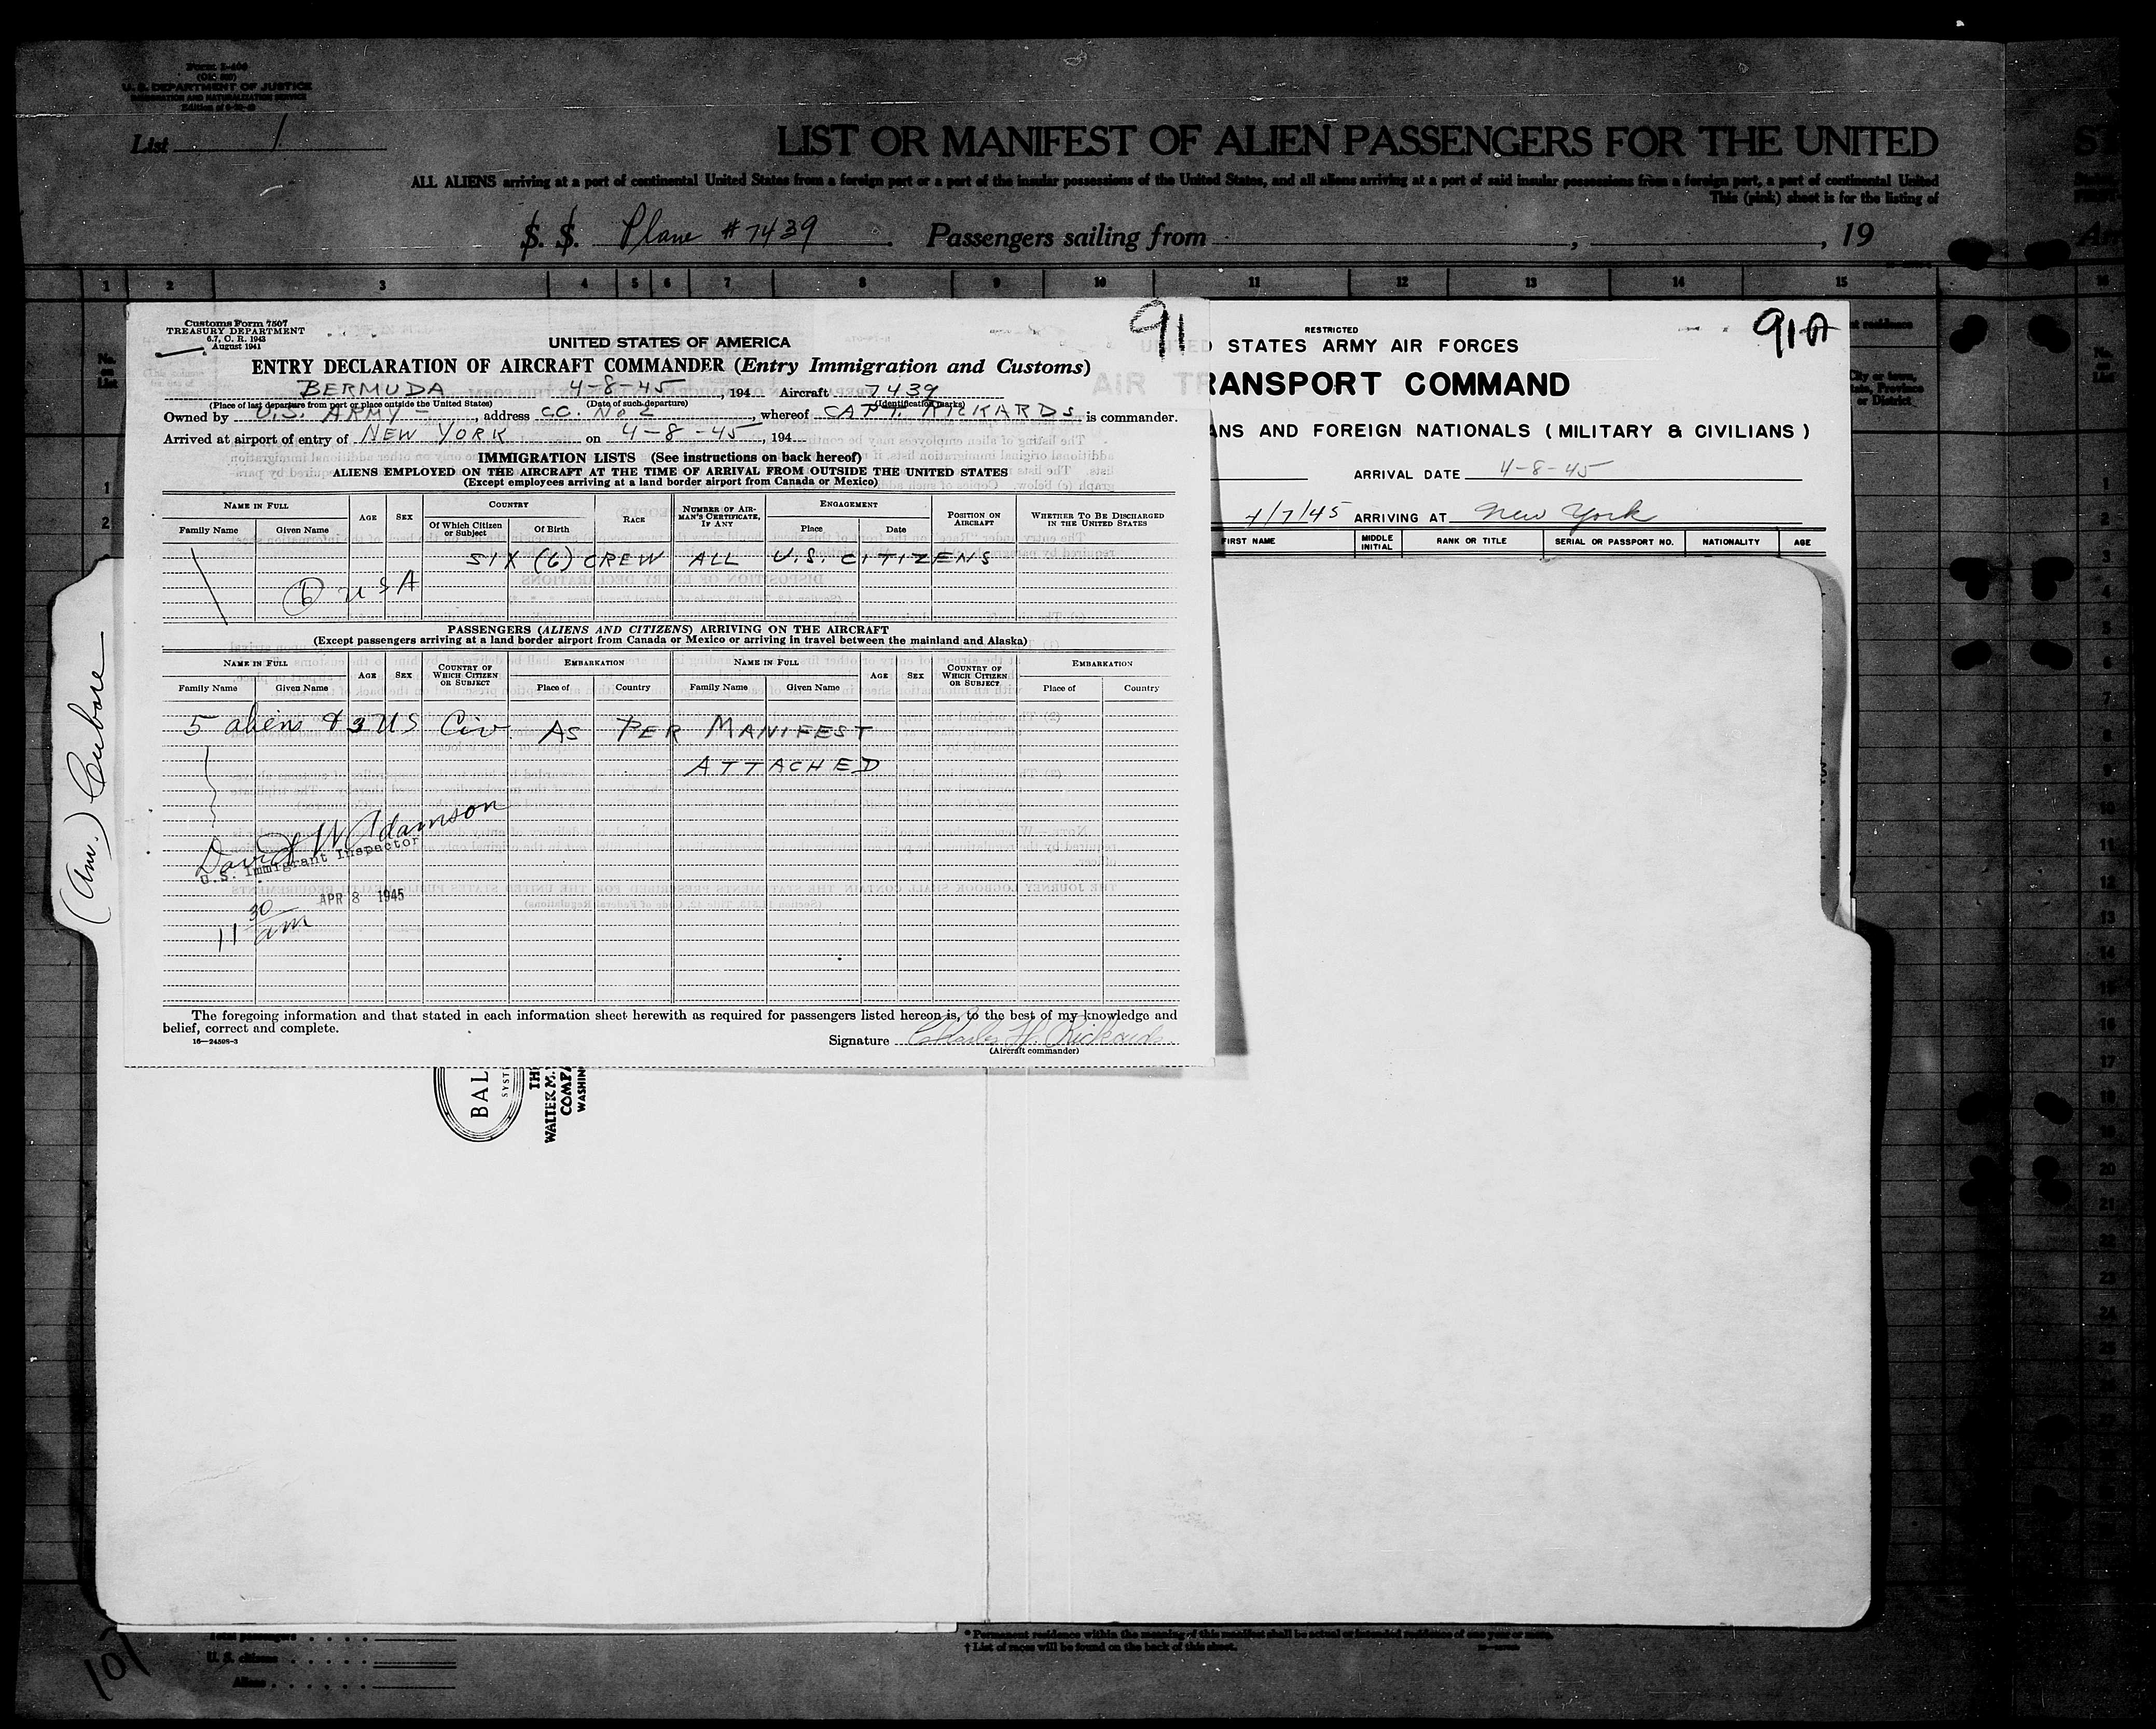 Form I-400
U. S. DEPARTMENT OF JUSTICE
IMMIGRATION AND NATURALIZATION SERVICE
List 1
LIST OR MANIFEST OF ALIEN PASSENGERS FOR THE UNITED
ALL ALIENS arriving at a port of continental United States from a foreign port or a port of the insular possessions of the United States, and all aliens arriving at a port of said insular possessions from a foreign port, a port of continental United
This (pink) sheet is for the listing of
S. S. Plane #7439 Passengers sailing from , , 19
1 2 3 4 5 6 7 8 9 10 11 12 13 14 15
Customs Form 7507
TREASURY DEPARTMENT
6.7, C. R. 1943
August 1941
91
UNITED STATES OF AMERICA
ENTRY DECLARATION OF AIRCRAFT COMMANDER (Entry Immigration and Customs)
BERMUDA 4-8-45, 194 Aircraft 7439
(Place of last departure from port or place outside the United States) (Date of such departure) (Identification marks)
Owned by U.S. ARMY, address C.C. No 2, whereof CAPT. RICKARDS is commander.
Arrived at airport of entry of NEW YORK on 4-8-45, 194
IMMIGRATION LISTS (See instructions on back hereof)
ALIENS EMPLOYED ON THE AIRCRAFT AT THE TIME OF ARRIVAL FROM OUTSIDE THE UNITED STATES
(Except employees arriving at a land border airport from Canada or Mexico)
NAME IN FULL AGE SEX COUNTRY RACE NUMBER OF AIRMAN'S CERTIFICATE, IF ANY ENGAGEMENT POSITION ON AIRCRAFT WHETHER TO BE DISCHARGED IN THE UNITED STATES
Family Name Given Name Of Which Citizen or Subject Of Birth Place Date
SIX (6) CREW ALL U.S. CITIZENS
6 USA
PASSENGERS (ALIENS AND CITIZENS) ARRIVING ON THE AIRCRAFT
(Except passengers arriving at a land border airport from Canada or Mexico or arriving in travel between the mainland and Alaska)
NAME IN FULL AGE SEX COUNTRY OF WHICH CITIZEN OR SUBJECT EMBARKATION NAME IN FULL AGE SEX COUNTRY OF WHICH CITIZEN OR SUBJECT EMBARKATION
Family Name Given Name Place of Country Family Name Given Name Place of Country
5 aliens & 3 US Civ. AS PER MANIFEST
ATTACHED
David W Adamson
U.S. Immigrant Inspector
APR 8 1945
11 30 am
The foregoing information and that stated in each information sheet herewith as required for passengers listed hereon is, to the best of my knowledge and
belief, correct and complete.
16—24598-3
Signature Charles H. Rickards
(Aircraft commander)
RESTRICTED
91A
UNITED STATES ARMY AIR FORCES
AIR TRANSPORT COMMAND
ANS AND FOREIGN NATIONALS (MILITARY & CIVILIANS)
ARRIVAL DATE 4-8-45
4/7/45 ARRIVING AT New York
FIRST NAME MIDDLE INITIAL RANK OR TITLE SERIAL OR PASSPORT NO. NATIONALITY AGE
(Am.)
BAL
SYST
TH
WALTER M.
COMPA
WASHIN
* Permanent residence within the meaning of this manifest shall be actual or intended residence of one year or more.
† List of races will be found on the back of this sheet.
Total passengers
U. S. citizens
Aliens
107